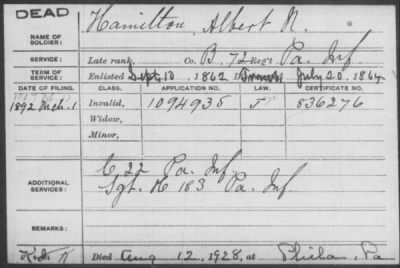 DEAD
NAME OF SOLDIER: Hamilton, Albert N.
SERVICE: Late rank, Co. B, 72 Reg't Pa. Inf.
TERM OF SERVICE: Enlisted Sept. 10 1862 July 20. 1864
DATE OF FILING. CLASS. APPLICATION NO. LAW. CERTIFICATE NO.
1892 Mch. 1 Invalid, 1094935 J 836276
Widow,
Minor,
ADDITIONAL SERVICES: C 22 Pa. Inf.
Sgt. K 183 Pa. Inf
REMARKS:
Died Aug 12, 1928, at Phila. Pa